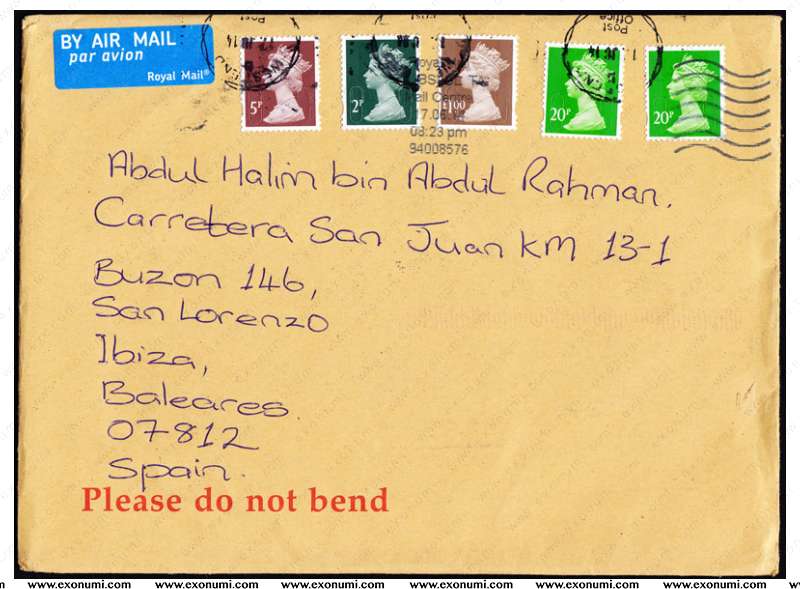 BY AIR MAIL
par avion
Royal Mail®
5P
2P
£1.00
20P
20P
Post
Office
Mail Centre
08:23 pm
94008576
Abdul Halim bin Abdul Rahman.
Carretera San Juan KM 13-1
Buzon 146,
San Lorenzo
Ibiza,
Baleares
07812
Spain.
Please do not bend
www.exonumi.com www.exonumi.com www.exonumi.com www.exonumi.com www.exonumi.com www.exonumi.com